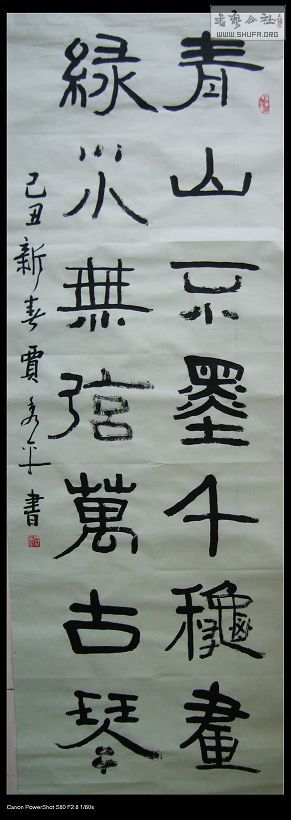 書藝公社
WWW.SHUFA.ORG
青山不墨千龝畫
緑水無弦萬古琴
己丑新春賈秀平書
Canon PowerShot S80 F2.8 1/60s